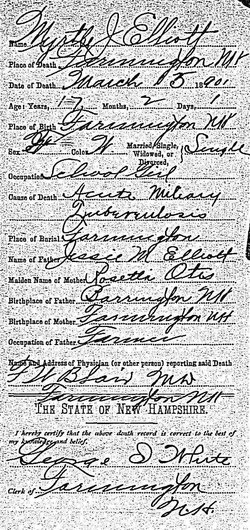 Name Myrtle J Elliott
Place of Death Farmington NH
Date of Death March 5 1890
Age: Years, 17 Months, 2 Days, 1
Place of Birth Farmington NH
Sex Color W Married, Single, Widowed, or Divorced, Single
Occupation School Girl
Cause of Death Acute Miliary
Tuberculosis
Place of Burial Farmington
Name of Father Jessie M Elliott
Maiden Name of Mother Rosetta Otis
Birthplace of Father NH
Birthplace of Mother Farmington NH
Occupation of Father Farmer
Name and Address of Physician (or other person) reporting said Death
MD
Farmington NH
THE STATE OF NEW HAMPSHIRE.
I hereby certify that the above death record is correct to the best of
my knowledge and belief.
George White
Clerk of Farmington
N.H.